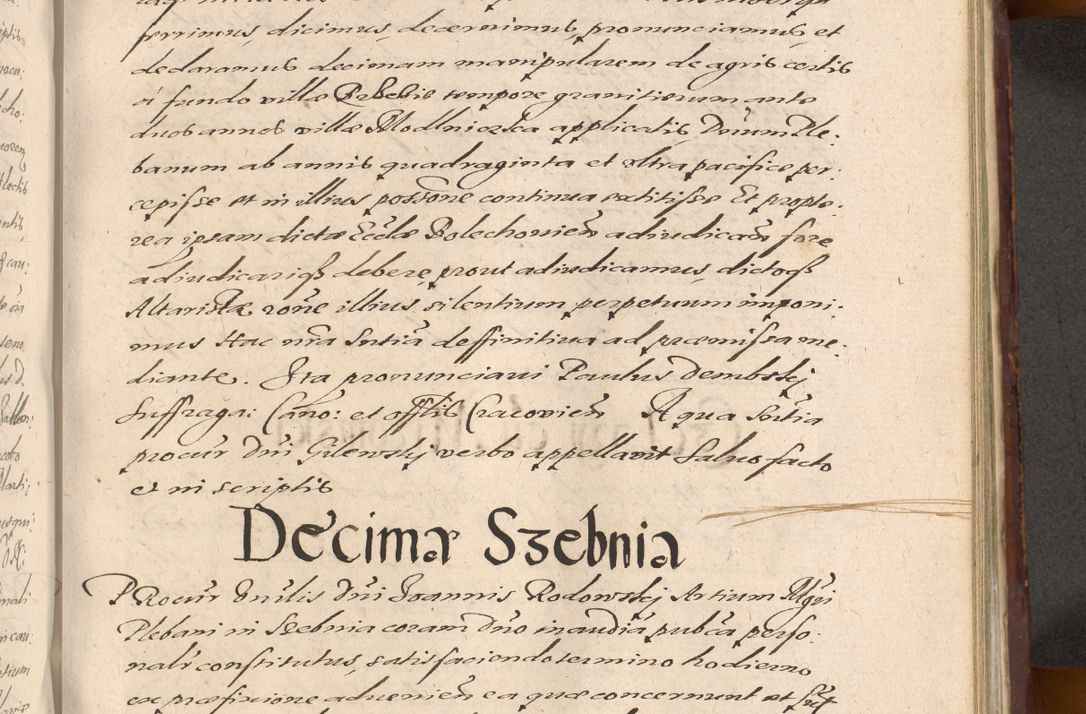 ferrimus, dicimus, decernimus, pronunciamus, et
declaramus decimam manipularem de agris certis
si fundo villæ Brzebie tempore granitierum ante
duos annos villæ Modlniczka applicatis Dnum Ple:
banum ab annis quadraginta et vltra pacifice per:
cepisse et in illius possone continua extitisse Et propte:
rea ipsam dictæ Eccliæ Bolechouien adiudicam fore
adiudicariqß debere, prout adiudicamus, dictoqß
Altaristæ rone illius silentium perpetuum imponi:
mus Hac nra sntia deffinitiua ad præmissa me:
diante. Ita pronunciaui Paulus Dembskj
Suffraga: Cano: et offlis Cracouien A qua sntia
procur Dni Gilewskj verbo appellauit Saluo facto
et in scriptis
Decimæ Szebnia
PRocur Gnulis Dni Joannis Rodowskj Artium Mgri
Plebani in Szebnia coram Dno in audia pubca perso:
nalr constitutus, satisfaciendo termino hodierno
ex præfixione aduenien ea quæ concernunt et sut